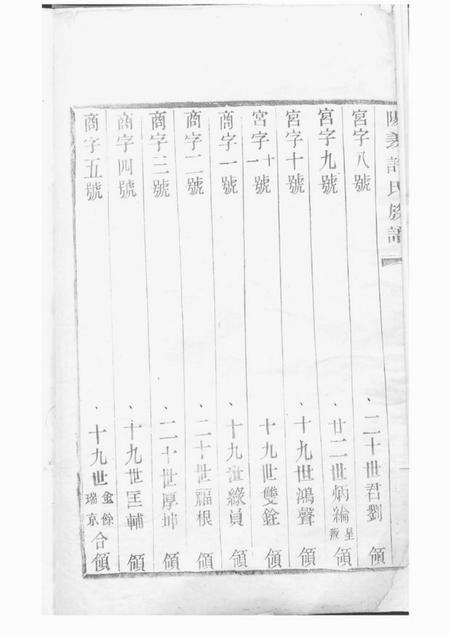 陽羨許氏族譜
宮字八號 、二十世君劉 領
宮字九號 、廿二世炳綸 星 領
宮字十號 、十九世鴻聲 領
宮字十一號 、十九世雙銓 領
商字一號 、十九世緣員 領
商字二號 、二十世福根 領
商字三號 、二十世厚坤 領
商字四號 、十九世匡輔 領
商字五號 、十九世 金餘 瑞京 合領